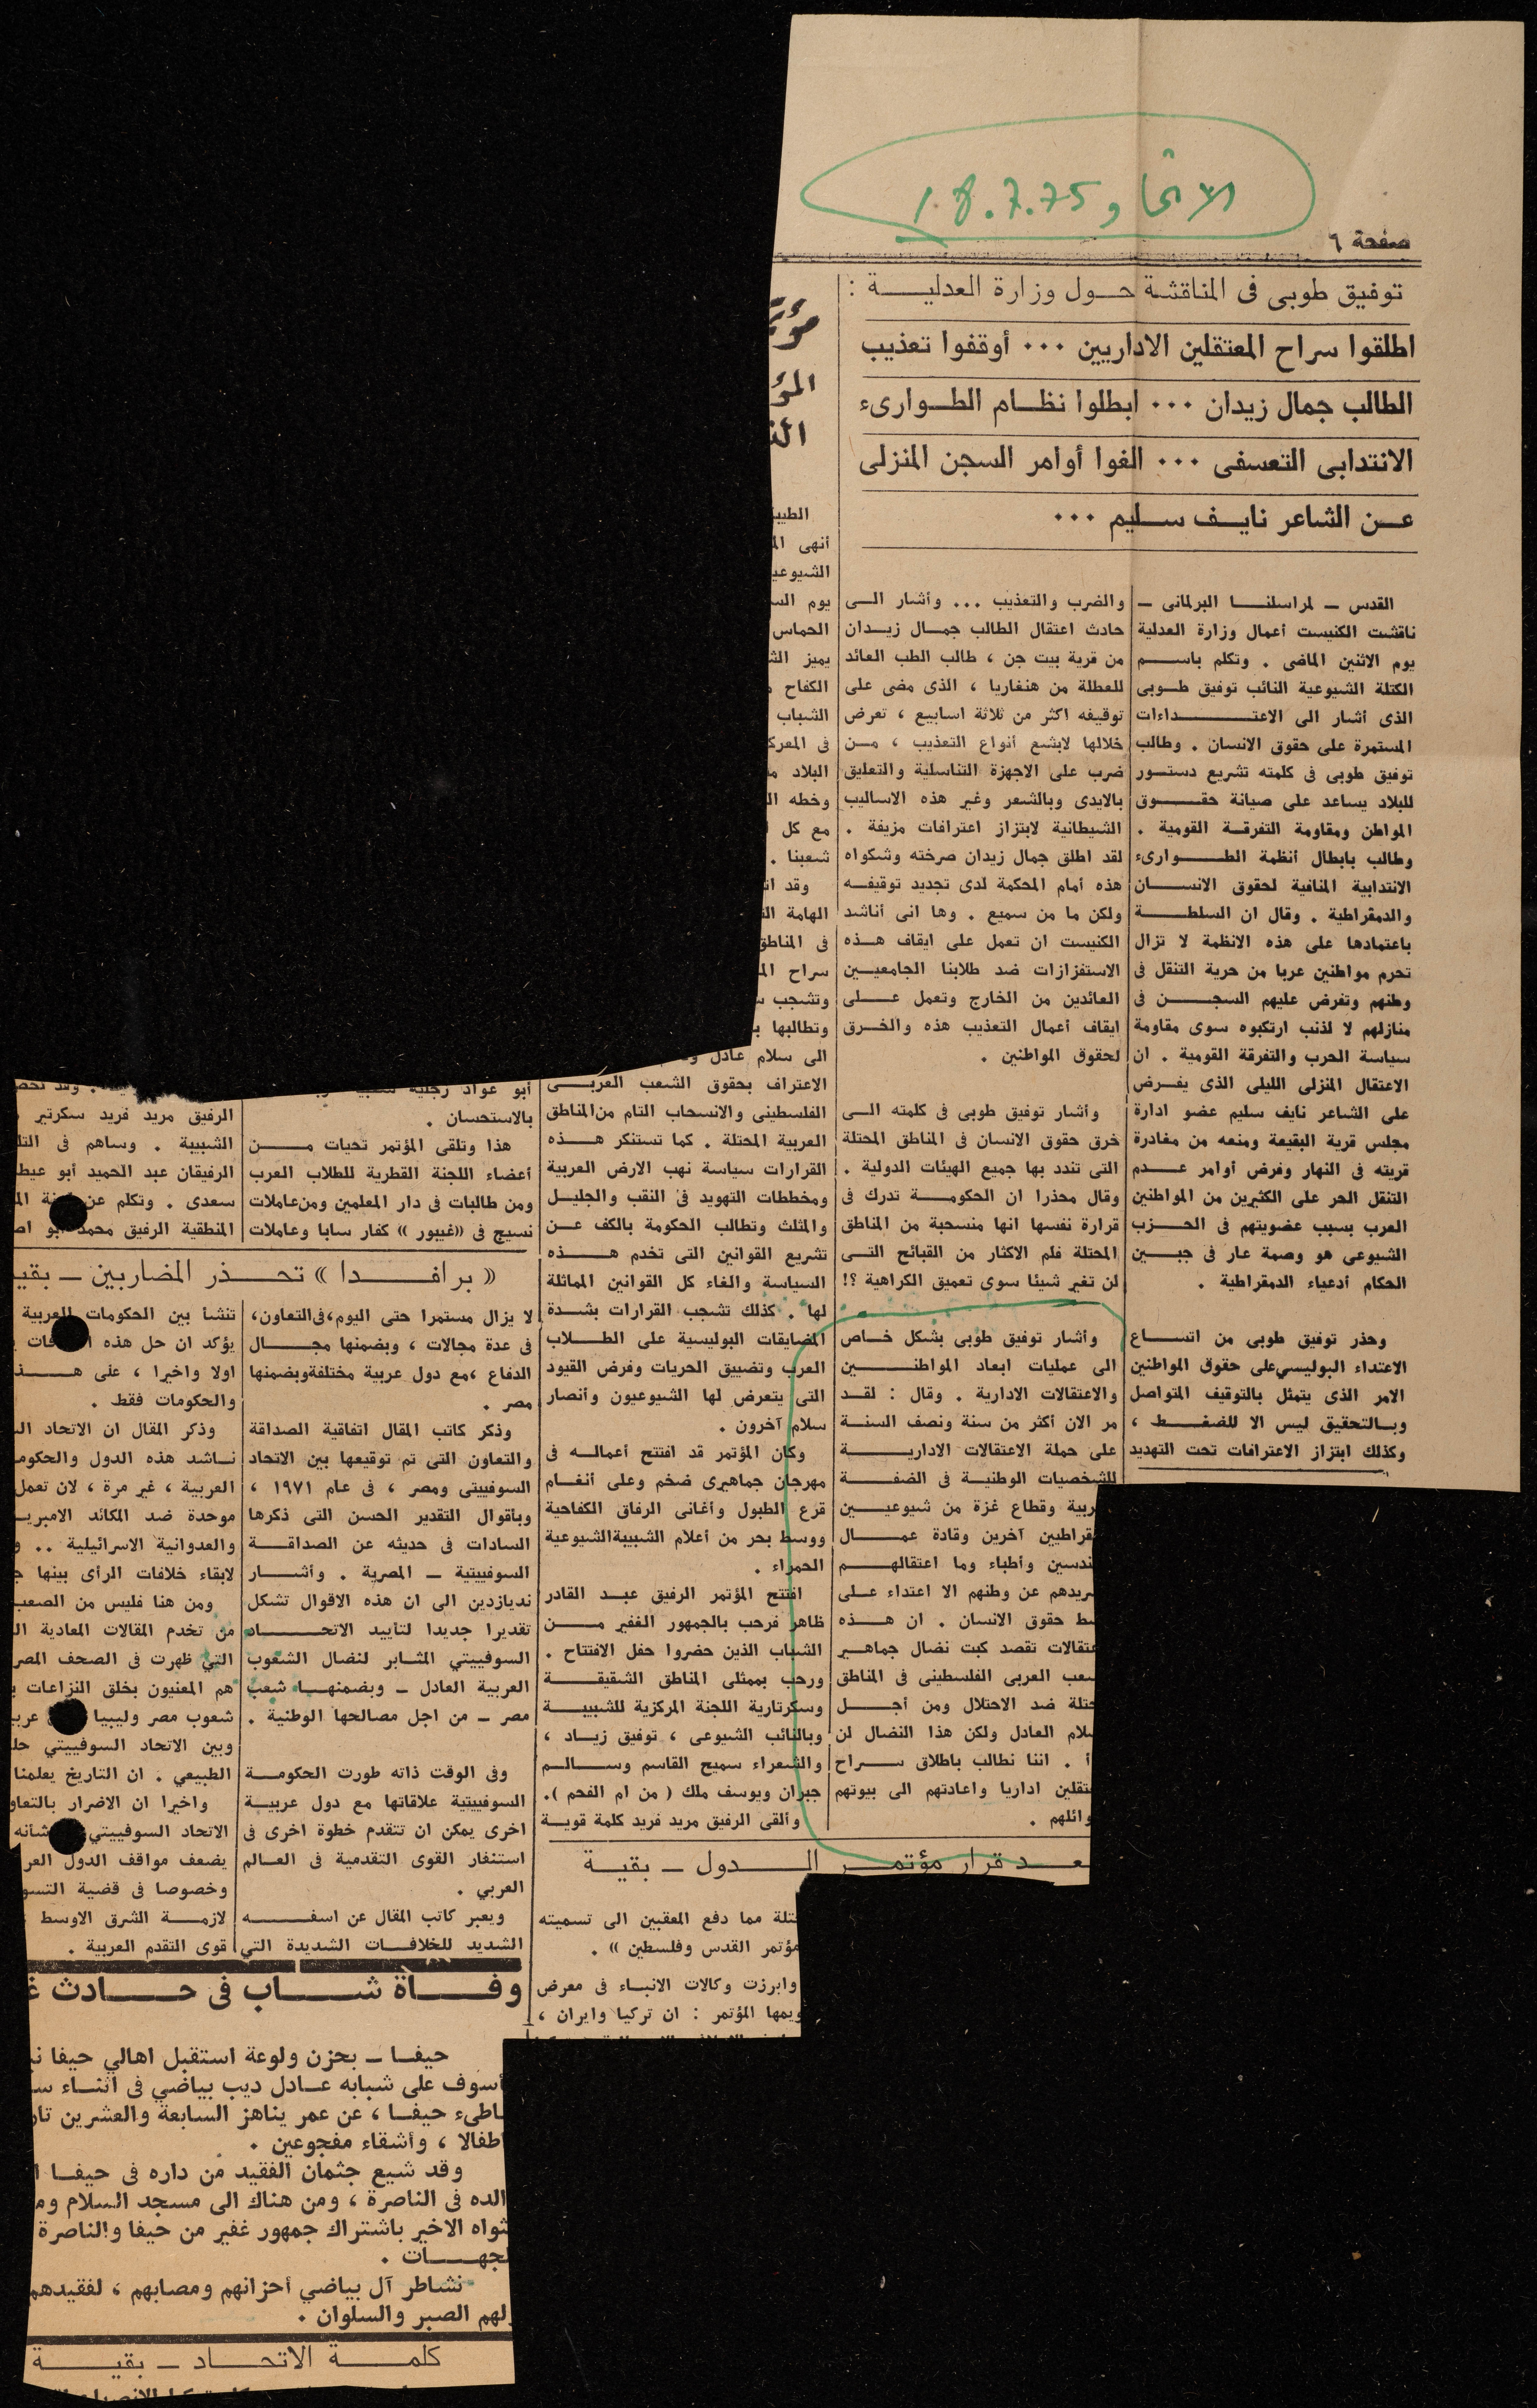 الاتحاد 18.7.75
صفحة ٦
توفيق طوبى فى المناقشة حـــول وزارة العدليـــــة :
اطلقوا سراح المعتقلين الاداريين ٠٠٠ أوقفوا تعذيب
الطالب جمال زيدان ٠٠٠ ابطلوا نظـام الطـوارىء
الانتدابى التعسفى ٠٠٠ الغوا أوامر السجن المنزلى
عـن الشاعر نايـف سـليم ٠٠٠
القدس ـ لمراسلنـا البرلمانى ـ
ناقشت الكنيست أعمال وزارة العدلية
يوم الاثنين الماضى . وتكلم باسـم
الكتلة الشيوعية النائب توفيق طـوبى
الذى أشار الى الاعتـــــداءات
المستمرة على حقوق الانسان . وطالب
توفيق طوبى فى كلمته تشريع دستـور
للبلاد يساعد على صيانة حقـــوق
المواطن ومقاومة التفرقـة القومية .
وطالب بابطال أنظمة الطــوارىء
الانتدابية المنافية لحقوق الانسـان
والدمقراطية . وقال ان السلطـــة
باعتمادها على هذه الانظمة لا تزال
تحرم مواطنين عربا من حرية التنقل فى
وطنهم وتفرض عليهم السجــن فى
منازلهم لا لذنب ارتكبوه سوى مقاومة
سياسة الحرب والتفرقة القومية . ان
الاعتقال المنزلى الليلى الذى يفـرض
على الشاعر نايف سليم عضو ادارة
مجلس قرية البقيعة ومنعه من مغادرة
قريته فى النهار وفرض أوامر عـدم
التنقل الحر على الكثيرين من المواطنين
العرب بسبب عضويتهم فى الحـزب
الشيوعى هو وصمة عار فى جبــين
الحكام أدعياء الدمقراطية .
وحذر توفيق طوبى من اتسـاع
الاعتداء البوليسي على حقوق المواطنين
الامر الذى يتمثل بالتوقيف المتواصل
وبـالتحقيق ليس الا للضغـط ،
وكذلك ابتزاز الاعترافات تحت التهديد
والضرب والتعذيب ... وأشار الـى
حادث اعتقال الطالب جمـال زيـدان
من قرية بيت جن ، طالب الطب العائد
للعطلة من هنغاريا ، الذى مضى على
توقيفه اكثر من ثلاثة اسابيع ، تعرض
خلالها لابشع أنواع التعذيب ، مـن
ضرب على الاجهزة التناسلية والتعليق
بالايدى وبالشعر وغير هذه الاساليب
الشيطانية لابتزاز اعترافات مزيفة .
لقد اطلق جمال زيدان صرخته وشكواه
هذه أمام المحكمة لدى تجديد توقيفـه
ولكن ما من سميع . وها انى أناشد
الكنيست ان تعمل على ايقاف هـذه
الاستفزازات ضد طلابنا الجامعيـين
العائدين من الخارج وتعمل عـلى
ايقاف أعمال التعذيب هذه والخـرق
لحقوق المواطنين .
وأشار توفيق طوبى فى كلمته الـى
خرق حقوق الانسان فى المناطق المحتلة
التى تندد بها جميع الهيئات الدولية .
وقال محذرا ان الحكومـة تدرك فى
قرارة نفسها انها منسحبة من المناطق
المحتلة فلم الاكثار من القبائح التـى
لن تغير شيئا سوى تعميق الكراهية ؟!
وأشار توفيق طوبى بشكل خـاص
الى عمليات ابعاد المواطنـــين
والاعتقالات الادارية . وقال : لقـد
مر الان أكثر من سنة ونصف السنـة
على حملة الاعتقالات الاداريـــة
للشخصيات الوطنيـة فى الضفـــة
ربية وقطاع غزة من شيوعيـــين
قراطيين آخرين وقادة عمـــال
ندسين وأطباء وما اعتقالهـــم
ريدهم عن وطنهم الا اعتداء عـلى
سط حقوق الانسان . ان هـــذه
عتقالات تقصد كبت نضال جماهـير
شعب العربى الفلسطينى فى المناطق
حتلة ضد الاحتلال ومن أجـــل
سلام العادل ولكن هذا النضال لن
أ . اننا نطالب باطلاق ســراح
عتقلين اداريا واعادتهم الى بيوتهم
وائلهم .
مؤتـ
المؤ
الطيبـ
أنهى الم
الشيوعيـ
يوم السـ
الحماس
يميز الشـ
الكفاح
الشباب
فى المعركـ
البلاد
وخطه ال
مع كل
شعبنا .
وقد ات
الهامة
فى المناطق
سراح
وتشجب
وتطالبها
الى سلام عادل
الاعتراف بحقوق الشعب العربـى
الفلسطينى والانسحاب التام من المناطق
العربية المحتلة . كما تستنكر هــذه
القرارات سياسة نهب الارض العربية
ومخططات التهويد فى النقب والجليـل
والمثلث وتطالب الحكومة بالكف عـن
تشريع القوانين التى تخدم هـــذه
السياسة والغاء كل القوانين المماثلة
لها . كذلك تشجب القرارات بشـدة
المضايقات البوليسية على الطـلاب
العرب وتضييق الحريات وفرض القيود
التى يتعرض لها الشيوعيون وأنصار
سلام آخرون .
وكان المؤتمر قد افتتح أعمالـه فى
مهرجان جماهيرى ضخم وعلى أنغـام
قرع الطبول وأغانى الرفاق الكفاحية
ووسط بحر من أعلام الشبيبة الشيوعية
الحمراء .
افتتح المؤتمر الرفيق عبـد القادر
ظاهر فرحب بالجمهور الغفير مــن
الشباب الذين حضروا حفل الافتتاح .
ورحب بممثلى المناطق الشقيقـــة
وسكرتارية اللجنة المركزية للشبيبــة
وبالنائب الشيوعى ، توفيق زيـاد ،
والشعراء سميح القاسم وســالم
جبران ويوسف ملك ( من ام الفحم ).
وألقى الرفيق مريد فريد كلمة قويـة
عـد قرار مؤتمـر الـدول ـ بقيـة
حتلة مما دفع المعقبين الى تسميته
مؤتمر القدس وفلسطين » .
وابرزت وكالات الانباء فى معرض
ويمها المؤتمر : ان تركيا وايران ،
أبو عواد
بالاستحسان .
هذا وتلقى المؤتمر تحيات مــن
أعضاء اللجنة القطرية للطلاب العرب
ومن طالبات فى دار المعلمين ومن عاملات
نسيج فى «غيبور» كفار سابا وعاملات
الرفيق مريد فريد سكرتير
الشبيبة . وساهم فى
الرفيقان عبد الحميد أبو عيطـ
سعدى . وتكلم عن
المنطقية الرفيق محمد ابو
« برافـــدا » تحـــذر المضاربين ـ بقيـ
لا يزال مستمرا حتى اليوم، فى التعاون،
فى عدة مجالات ، وبضمنها مجـــال
الدفاع ، مع دول عربية مختلفة وبضمنها
مصر .
وذكر كاتب المقال اتفاقية الصداقة
والتعاون التى تم توقيعها بين الاتحاد
السوفييتى ومصر ، فى عام ١٩٧١ ،
وبأقوال التقدير الحسن التى ذكرها
السادات فى حديثه عن الصداقــة
السوفييتية ـ المصرية . وأشـــار
نديازدين الى ان هذه الاقوال تشكل
تقديرا جديدا لتأييد الاتحـــاد
السوفييتي المثـابر لنضال الشعوب
العربية العادل ـ وبضمنهـا شعب
مصر ـ من اجل مصالحها الوطنية .
وفى الوقت ذاته طورت الحكومـة
السوفييتية علاقاتها مع دول عربيـة
اخرى يمكن ان تتقدم خطوة اخرى فى
استنفار القوى التقدمية فى العـالم
العربي .
ويعبر كاتب المقال عن اسفـــه
الشديد للخلافـات الشديدة التي
تنشأ بين الحكومات العربية
يؤكد ان حل هذه
اولا واخيرا ، على هـــذ
والحكومات فقط .
وذكر المقال ان الاتحاد
نـاشد هذه الدول والحكومـ
العربية ، غير مرة ، لان تعمل
موحدة ضد المكائد الامبريـ
والعدوانية الاسرائيلية ..
لابقاء خلافات الرأى بينها
ومن هنا فليس من الصعب
من تخدم المقالات المعادية
التي ظهرت فى الصحف المصر
هم المعنيون بخلق النزاعات
شعوب مصر وليبيا
وبين الاتحاد السوفييتي
الطبيعي . ان التاريخ يعلمنا
واخيرا ان الاضرار بالتعاو
الاتحاد السوفييتي شأنه
يضعف مواقف الدول العر
وخصوصا فى قضية التسو
لازمـة الشرق الاوسط
قوى التقدم العربية .
وفـــاة شـــاب فى حـــادث
حيفـا ـ بحزن ولوعة استقبل اهالي حيفا
أسوف على شبابه عـادل ديب بياضي فى اثنـاء
اطىء حيفـا ، عن عمر يناهز السابعة والعشرين
اطفالا ، وأشقاء مفجوعين .
وقد شيع جثمان الفقيد من داره فى حيفـا
الده فى الناصرة ، ومن هناك الى مسجد السلام
ثواه الاخير باشتراك جمهور غفير من حيفا والناصرة
لجهـــات .
نشاطر آل بياضي أحزانهم ومصابهم ، لفقيدهم
لهم الصبر والسلوان .
كلمـــة الاتحـــاد ـ بقيـــة